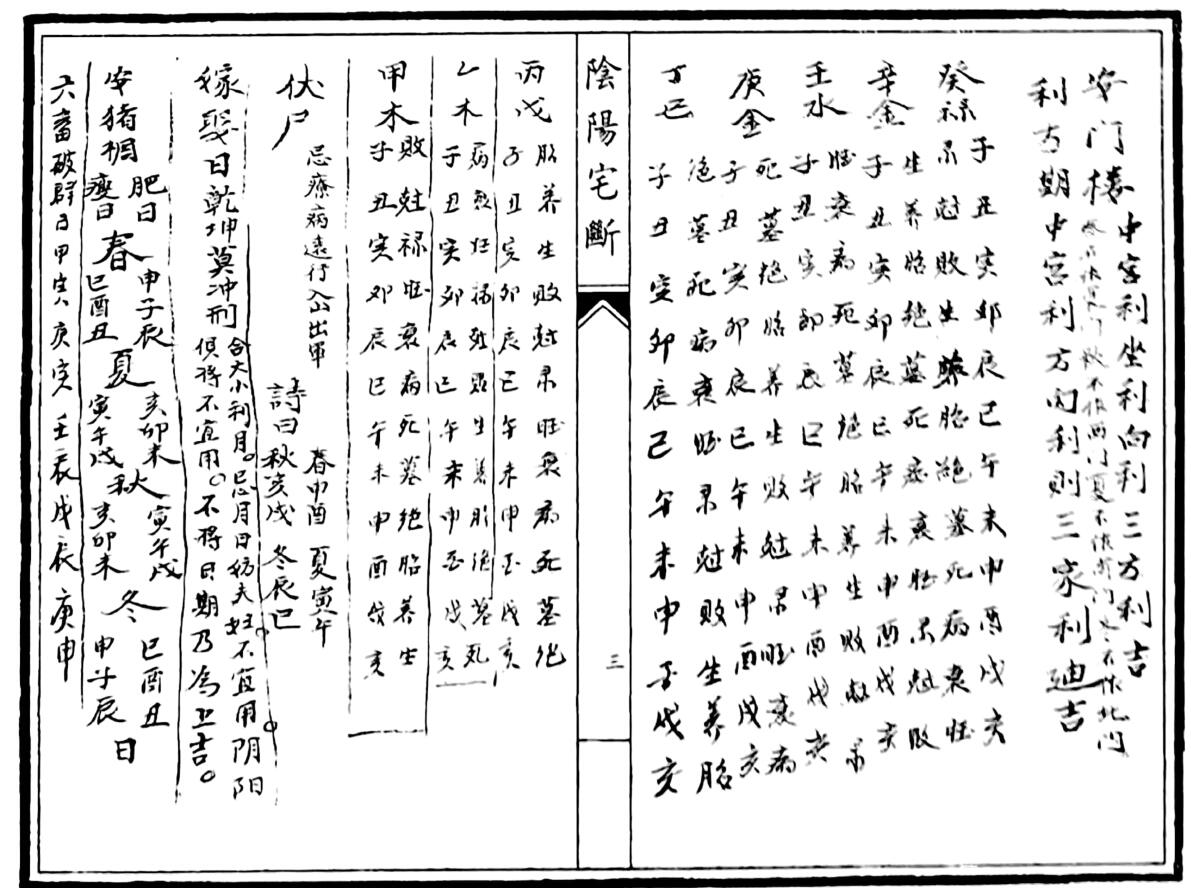 安门楼
中宫利坐利向利三方利吉
春不作東门秋不作西门夏不作南门冬不作北门
利方期中宫利方向利則三家利迪吉
癸禄
子丑寅卯辰巳午未申酉戌亥
尅敗生養胎绝墓死病衰旺
辛金
子丑寅卯辰巳午未申酉戌亥
生养胎绝墓死病衰旺尅敗
壬水
子丑寅卯辰巳午未申酉戌亥
旺衰病死墓绝胎养生敗
庚金
子丑寅卯辰巳午未申酉戌亥
死墓绝胎养生敗尅旺衰病
丁巳
子丑寅卯辰巳午未申酉戌亥
绝墓死病衰旺尅敗生养胎
陰陽宅斷
三
丙戊
胎养生敗尅旺衰病死墓绝
子丑寅卯辰巳午未申酉戌亥
乙木
病生养胎绝墓死
子丑寅卯辰巳午未申酉戌亥
甲木
敗尅禄旺衰病死墓绝胎养生
子丑寅卯辰巳午未申酉戌亥
伏尸
忌療病遠行出軍
春申酉 夏寅午
詩曰 秋亥戌 冬辰巳
嫁娶日乾坤莫冲刑
合大小利月。忌月日妨夫妇。不宜用。阴阳
俱将不宜用。不将日期乃為上吉。
安猪椆
肥日 春 申子辰 夏 亥卯未 秋 寅午戌 冬 巳酉丑
瘦日 巳酉丑 寅午戌 亥卯未 申子辰 日
六畜破群日甲寅 庚寅 壬辰 戊辰 庚申